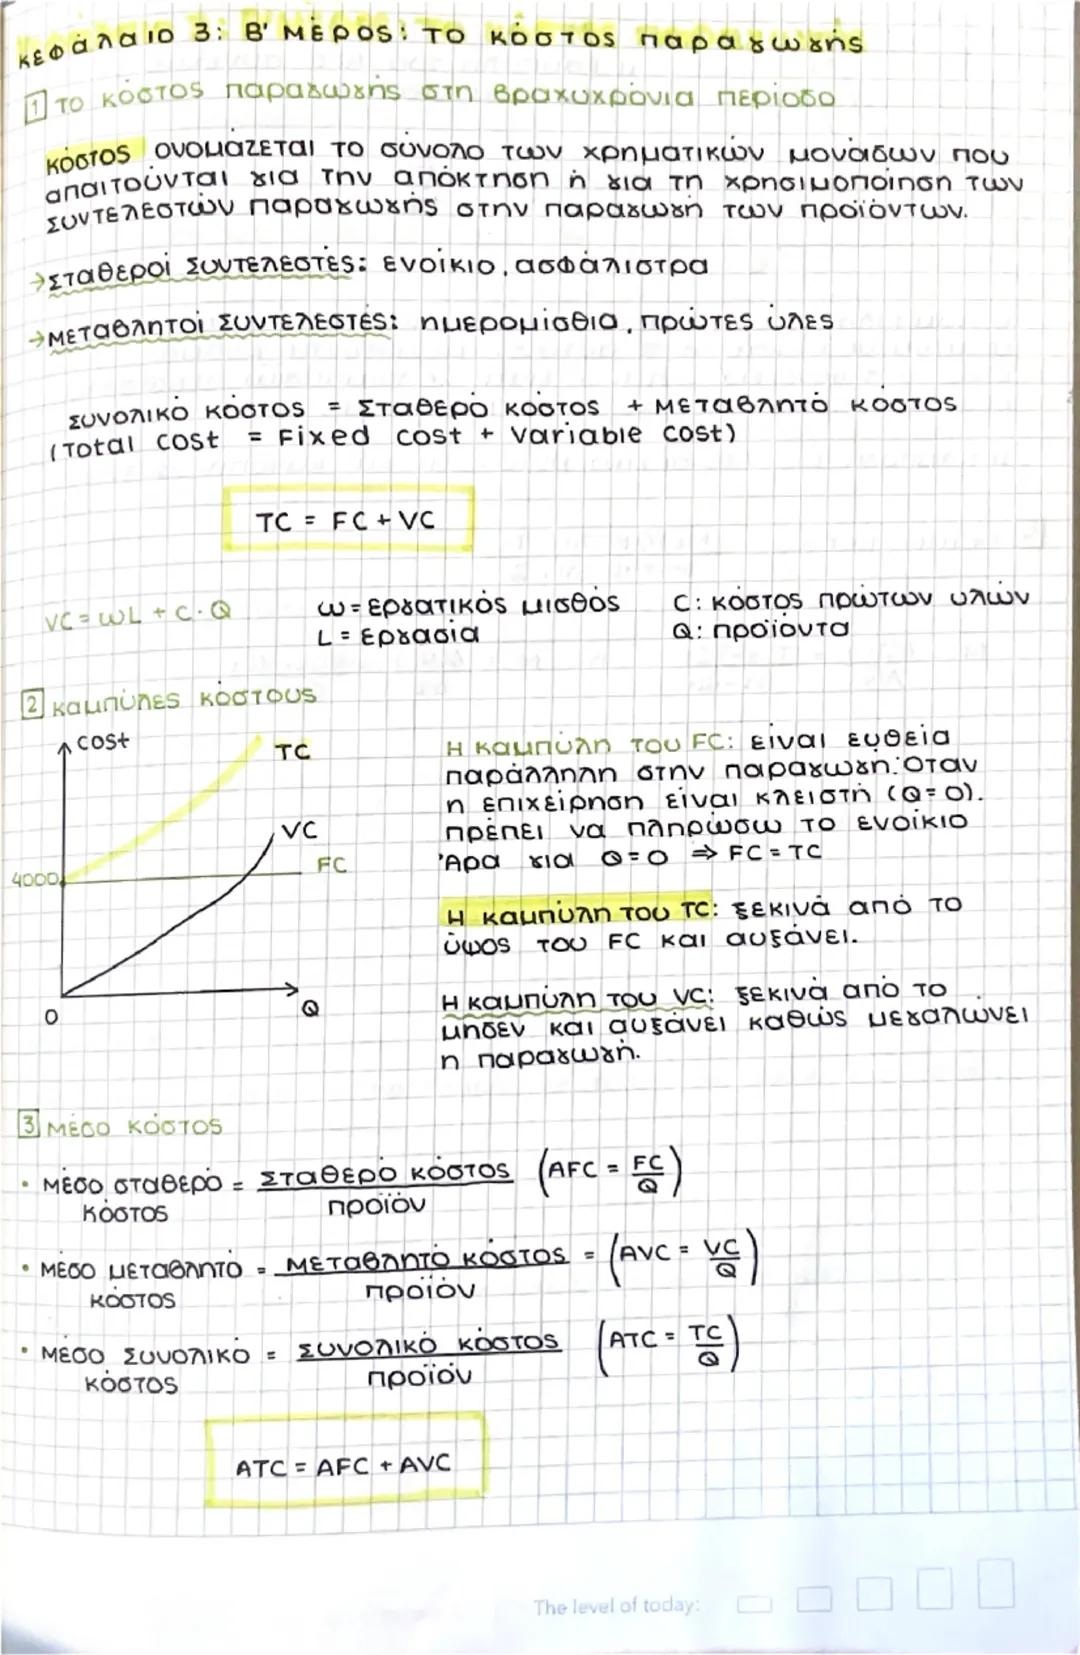 Κεφάλαιο 3: Β' Μέρος: Το κόστος παραγωγής
1 Το κόστος παραγωγής στη βραχυχρόνια περίοδο
Κόστος ονομάζεται το σύνολο των χρηματικών μονάδων που
απαιτούνται για την απόκτηση ή για τη χρησιμοποίηση των
συντελεστών παραγωγής στην παραγωγή των προϊόντων.
→Σταθεροί Συντελεστές: ενοίκιο, ασφάλιστρα
→Μεταβλητοί Συντελεστές: ημερομίσθια, πρώτες ύλες
Συνολικό κόστος = Σταθερό κόστος + Μεταβλητό κόστος
(Total cost = Fixed cost + Variable cost)
TC = FC + VC
VC = WL + C · Q
W = Εργατικός μισθός
L = Εργασία
C: κόστος πρώτων υλών
Q: προϊόντα
2 Καμπύλες κόστους
cost
TC
VC
FC
4000
0
Q
Η καμπύλη του FC: είναι ευθεία
παράλληλη στην παραγωγή. Όταν
η επιχείρηση είναι κλειστή (Q=0).
πρέπει να πληρώσω το ενοίκιο
Άρα για Q=0 ⇒ FC = TC
Η καμπύλη του TC: ξεκινά από το
ύψος του FC και αυξάνει.
Η καμπύλη του VC: ξεκινά από το
μηδέν και αυξάνει καθώς μεγαλώνει
η παραγωγή.
3 Μέσο κόστος
• Μέσο σταθερό κόστος = Σταθερό κόστος / προϊόν (AFC = FC/Q)
• Μέσο μεταβλητό κόστος = Μεταβλητό κόστος / προϊόν = (AVC = VC/Q)
• Μέσο Συνολικό κόστος = Συνολικό κόστος / προϊόν (ATC = TC/Q)
ATC = AFC + AVC
The level of today: